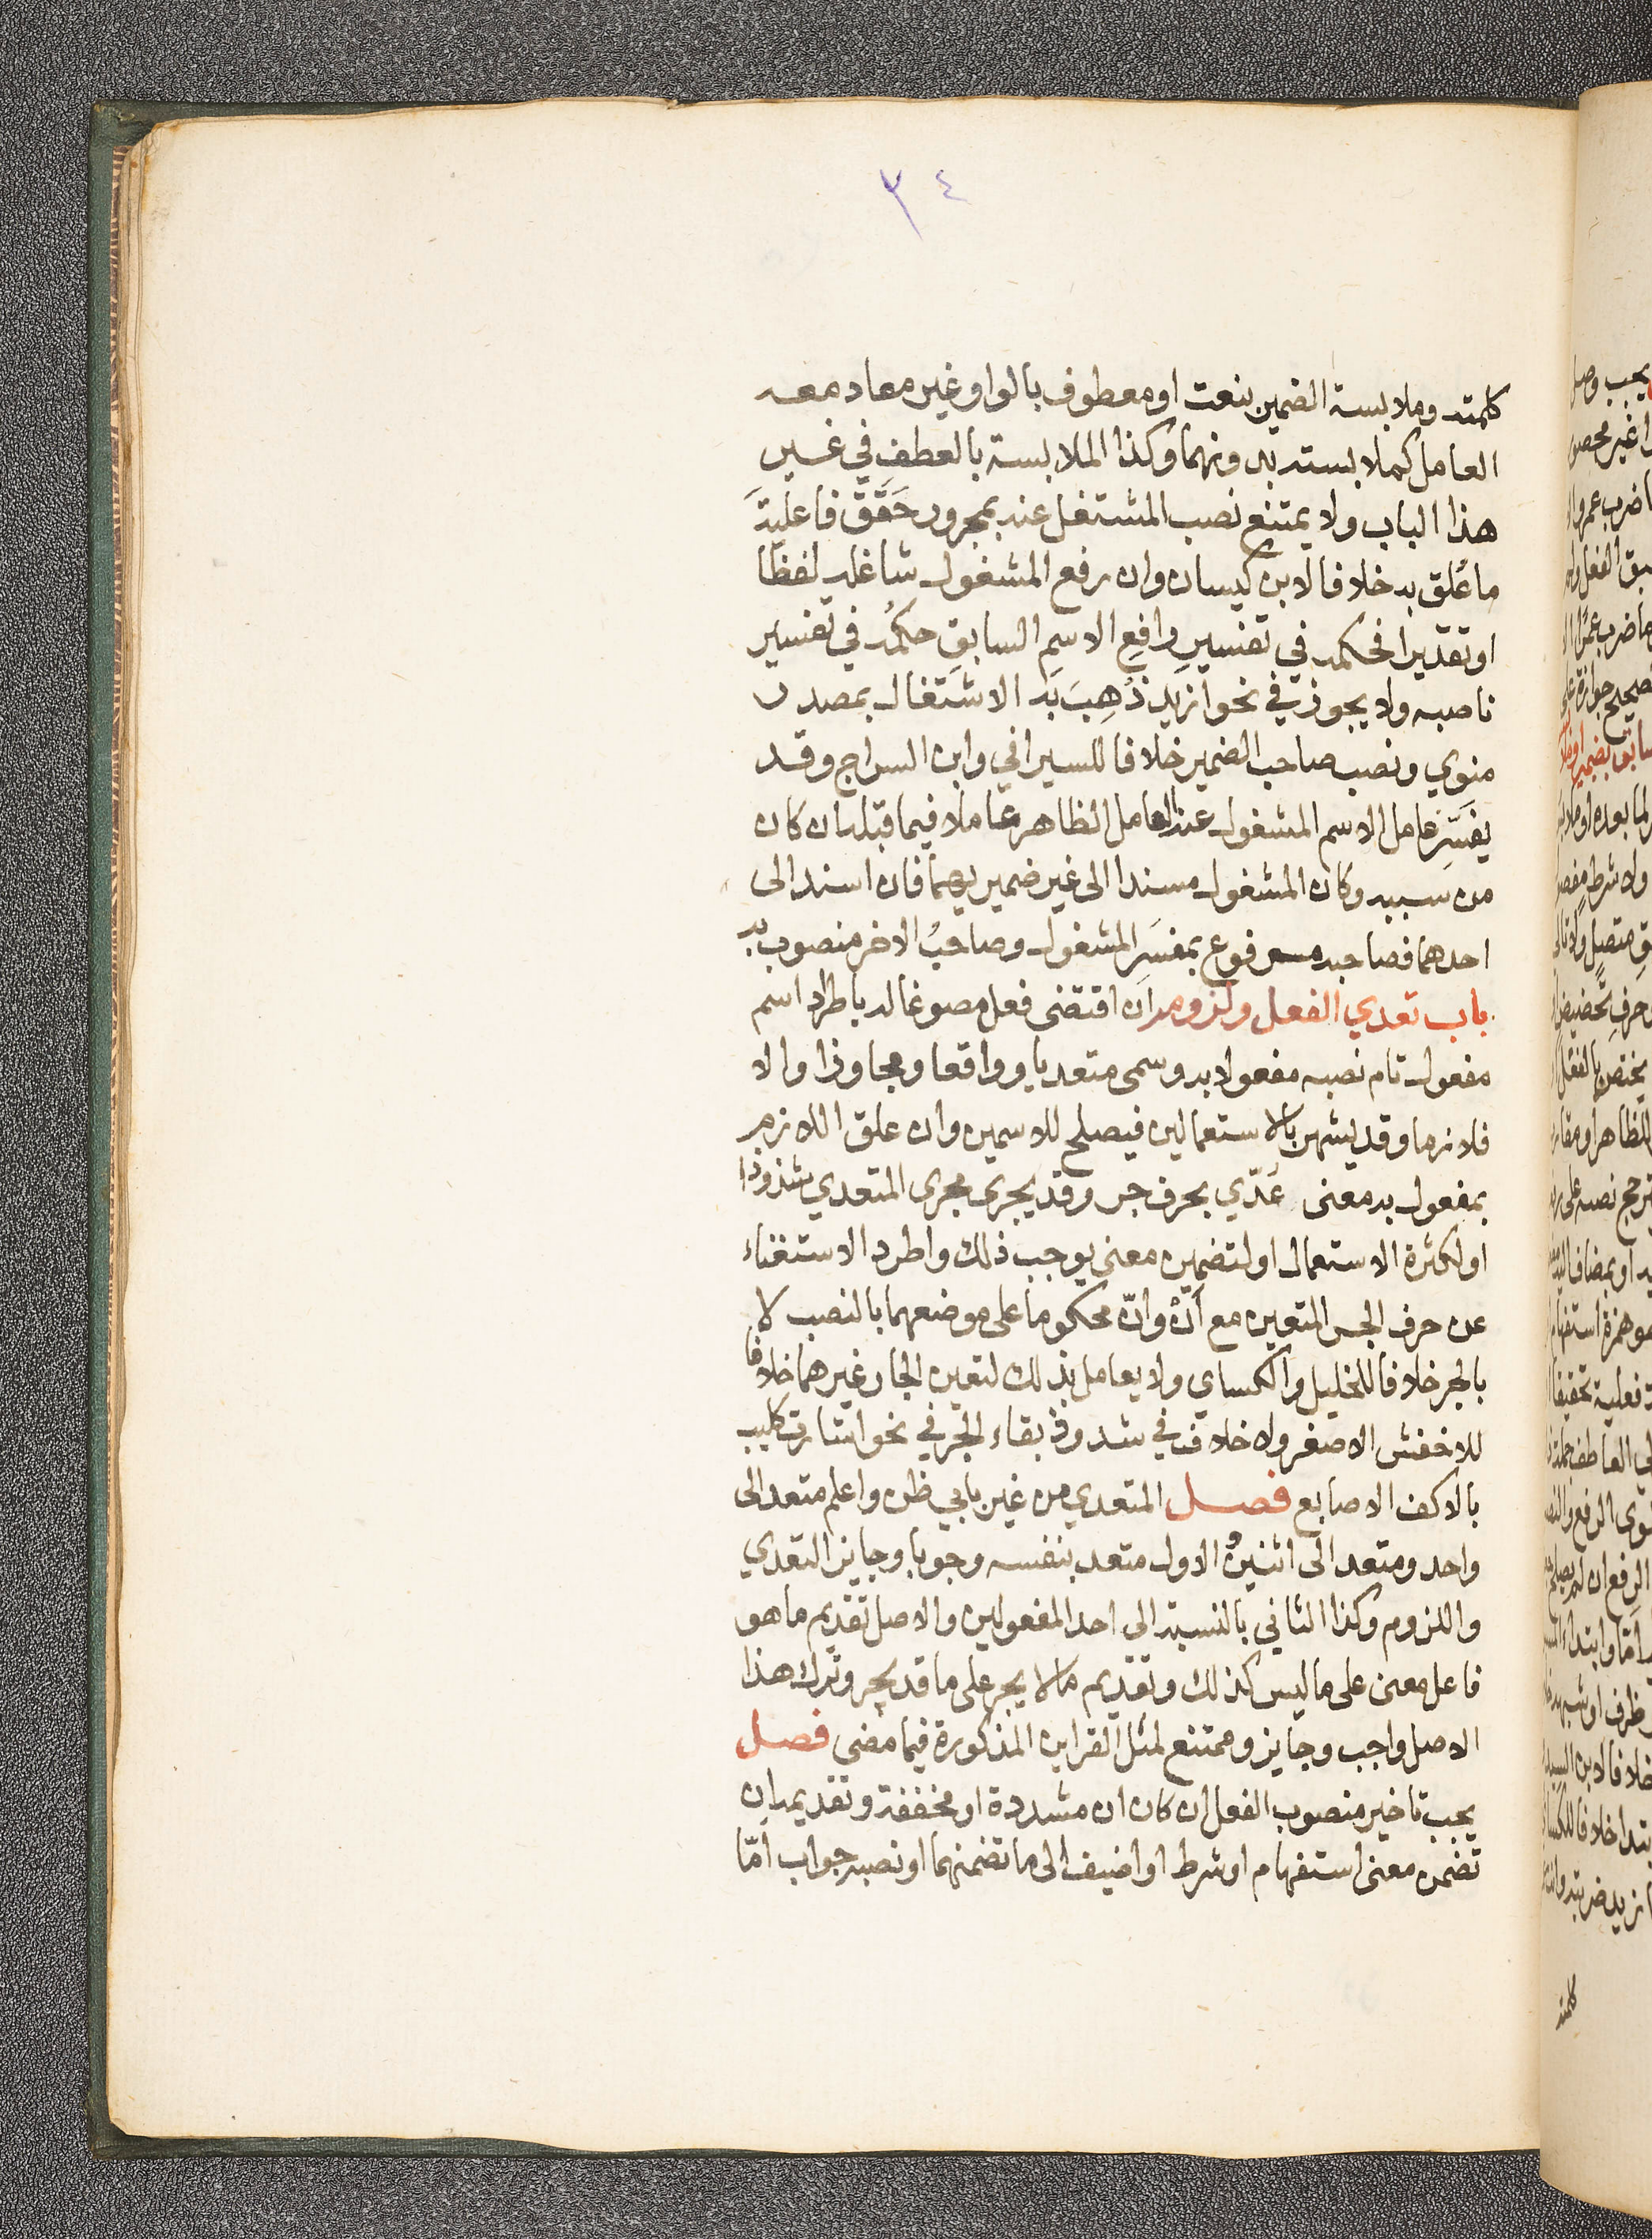 ٣٤
كلمته وملابسة الضمير بنعت او معطوف بالواو غير معاد معه
العامل كملابسته بدونهما وكذا الملابسة بالعطف في غير
هذا الباب ولا يمتنع نصب المشتغل عنه بمجرور حَقَّقَ فاعليَّةَ
ما عُلق به خلافا لابن كيسان وان رفع المشغول شاغله لفظا
او تقديرا فحكمه في تفسيرِ رافعِ الاسمِ السابقِ حكمُه في تفسير
ناصبه ولا يجوز في نحو ازيد ذُهِبَ بَه الاشتغال بمصدر
منوي ونصب صاحب الضمير خلافا للسيرافي وابن السراج وقد
يفسَّر عامل الاسم المشغول عنه العامل الظاهر عاملا فيما قبله ان كان
من سببه وكان المشغول مسندا الى غير ضميريهما فان اسند الى
احدهما فصاحبه مرفوع بمفسَر المشغول وصاحبُ الاخر منصوب به
باب تعدي الفعل ولزومه ان اقتضى فعل مصوغا له باطراد اسم
مفعول تام نصبه مفعولا به وسمى متعديا وواقعا ومجاوزا والا
فلازما وقد يشهر بالاستعمالين فيصلح للاسمين وان علق اللازم
بمفعول به معنى عُدّي بحرف جر وقد يجرى مجرى المتعدي شذوذا
او لكثرة الاستعمال او لتضمين معنى يوجب ذلك واطرد الاستغناء
عن حرف الجر المتعين مع أنّ وان محكوما على موضعهما بالنصب لا
بالجر خلافا للخليل والكساي ولا يعامل بذلك لتعين الجار غيرهما خلافا
للاخفش الاصغر ولا خلاف في شذوذ بقاء الجر في نحو اشارت كليب
بالاكف الاصابع فصل المتعدي من غير بابي ظن واعلم متعد الى
واحد ومتعد الى اثنين والاول متعد بنفسه وجوبا وجايز التعدي
واللزوم وكذا الثاني بالنسبة الى احد المفعولين والاصل تقديم ما هو
فاعل معنى على ما ليس كذلك وتقديم ما لا يجر على ما قد يجر وترك هذا
الاصل واجب وجايز وممتنع لمثل القراين المذكورة فيما مضى فصل
يجب تاخير منصوب الفعل ان كان ان مشددة او مخففة وتقديمه ان
تضمن معنى استفهام او شرط او اضيف الى ما تضمنهما او نصبه جواب امّا